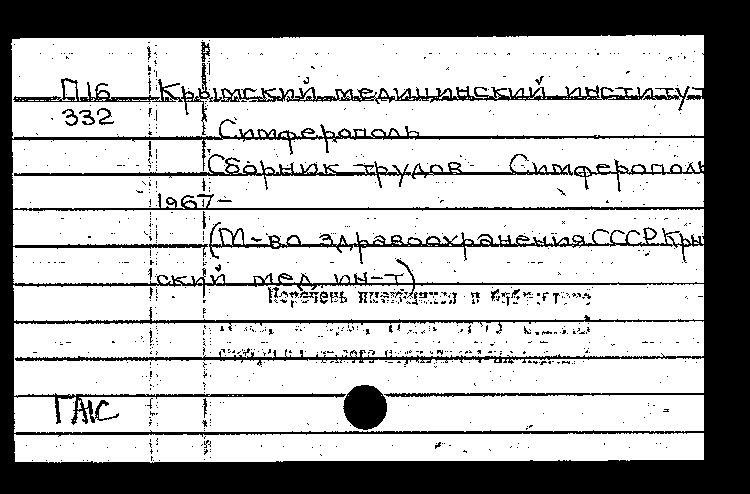 П16 Крымский медицинский институт
332
Симферополь
Сборник трудов Симферополь
1967-
(М-во здравоохранения СССР. Кры
ский мед. ин-т)
Перечень имеющихся в библиотеке
ГАК